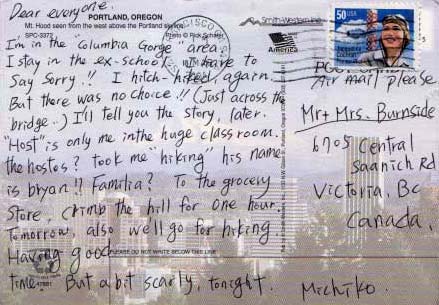 Dear everyone.
PORTLAND, OREGON
Mt. Hood seen from the west above the Portland
SPC-3372
Photo © Rick
Smith-Western Inc.
America
50 USA
Jacqueline
Cochran
I'm in the "Columbia Gorge" area.
I stay in the ex-school. I have to
Say Sorry!! I hitch-hiked, again.
But there was no choice!! (Just across the
bridge..) I'll tell you the story, later.
"Host" is only me in the huge classroom.
the hostes? took me "hiking" his name
is bryan!! Familia? To the grocery
Store, crimb the hill for one hour.
Tomorrow, also we'll go for hiking.
Having good
PLEASE DO NOT WRITE BELOW THIS LINE
time! But a bit scarly, tonight.
Michiko.
Air mail please
Mr + Mrs. Burnside
6705 Central
Saanich Rd
Victoria, Bc
Canada.